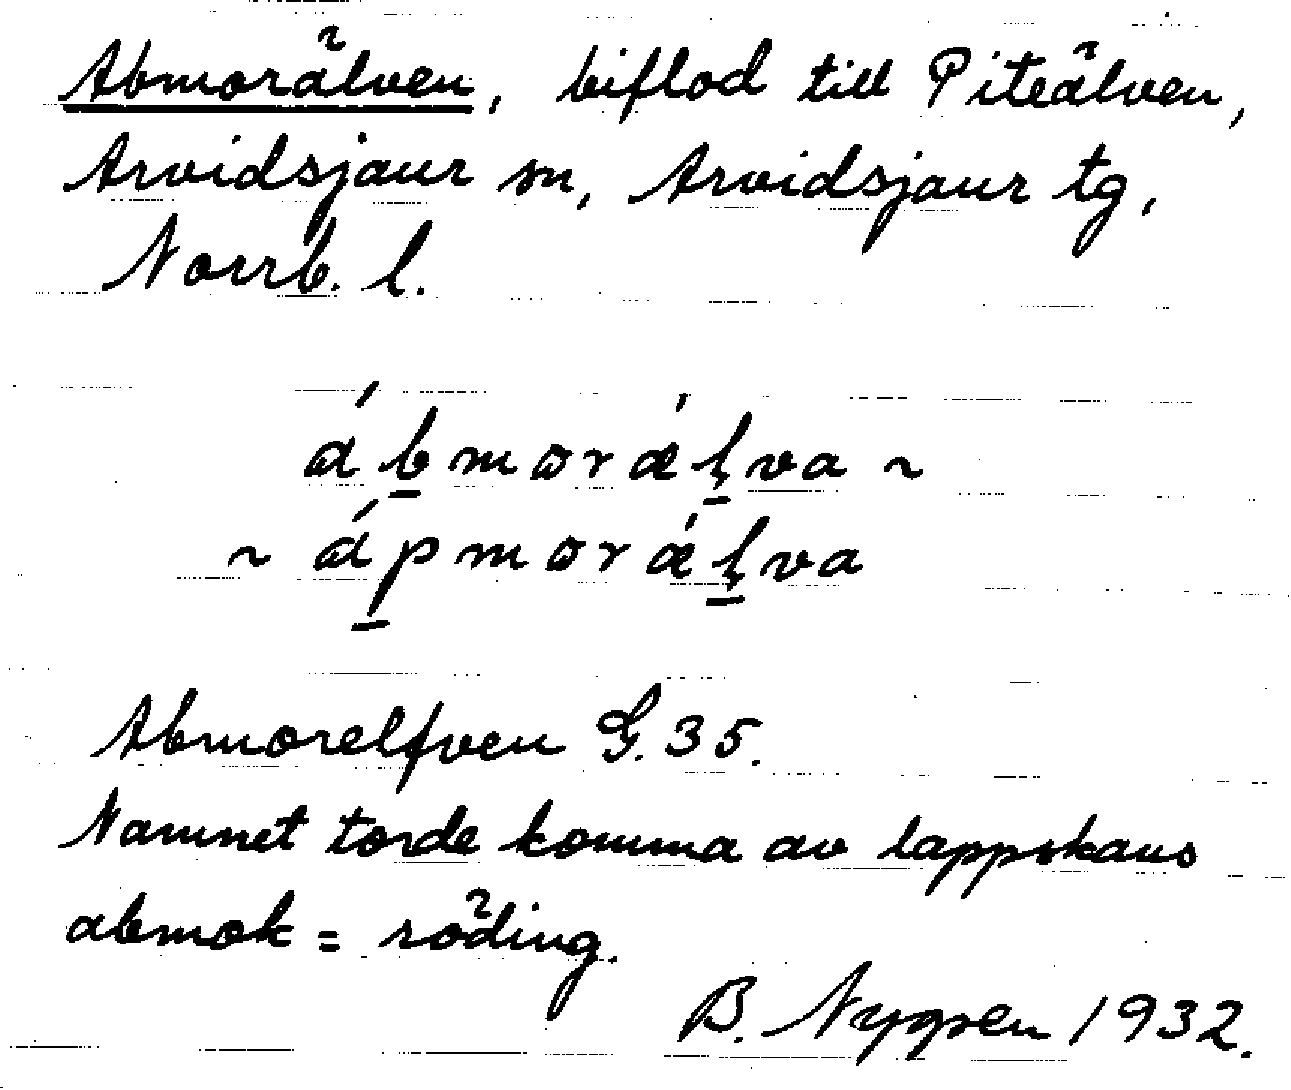 Abmorälven, biflod till Piteälven,
Arvidsjaur sn, Arvidsjaur tg,
Norrb. l.
ábmoræ̀lva ~
~ ápmoræ̀lva
Abmorelfven G. 35.
Namnet torde komma av lappskans
abmok = röding.
B. Nygren 1932.